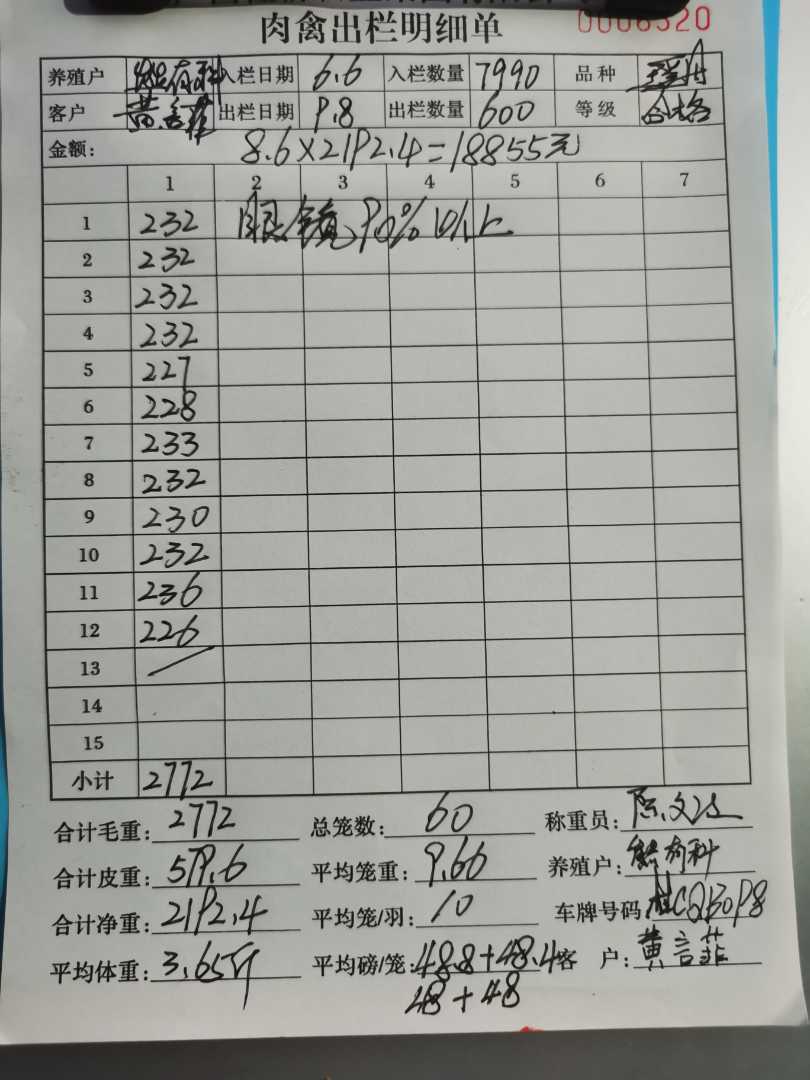 肉禽出栏明细单 0006320
养殖户 熊有科 入栏日期 6.6 入栏数量 7990 品种
客户 黄言菲 出栏日期 9.8 出栏数量 600 等级 合格
金额: 8.6×2192.4=18855元
1 2 3 4 5 6 7
1 232 眼镜90%以上
2 232
3 232
4 232
5 227
6 228
7 233
8 232
9 230
10 232
11 236
12 226
13 /
14
15
小计 2772
合计毛重: 2772 总笼数: 60 称重员:
合计皮重: 579.6 平均笼重: 9.66 养殖户: 熊有科
合计净重: 2192.4 平均笼/羽: 10 车牌号码
平均体重: 3.65斤 平均磅/笼: 48.8+48.4 客 户: 黄言菲
48+48